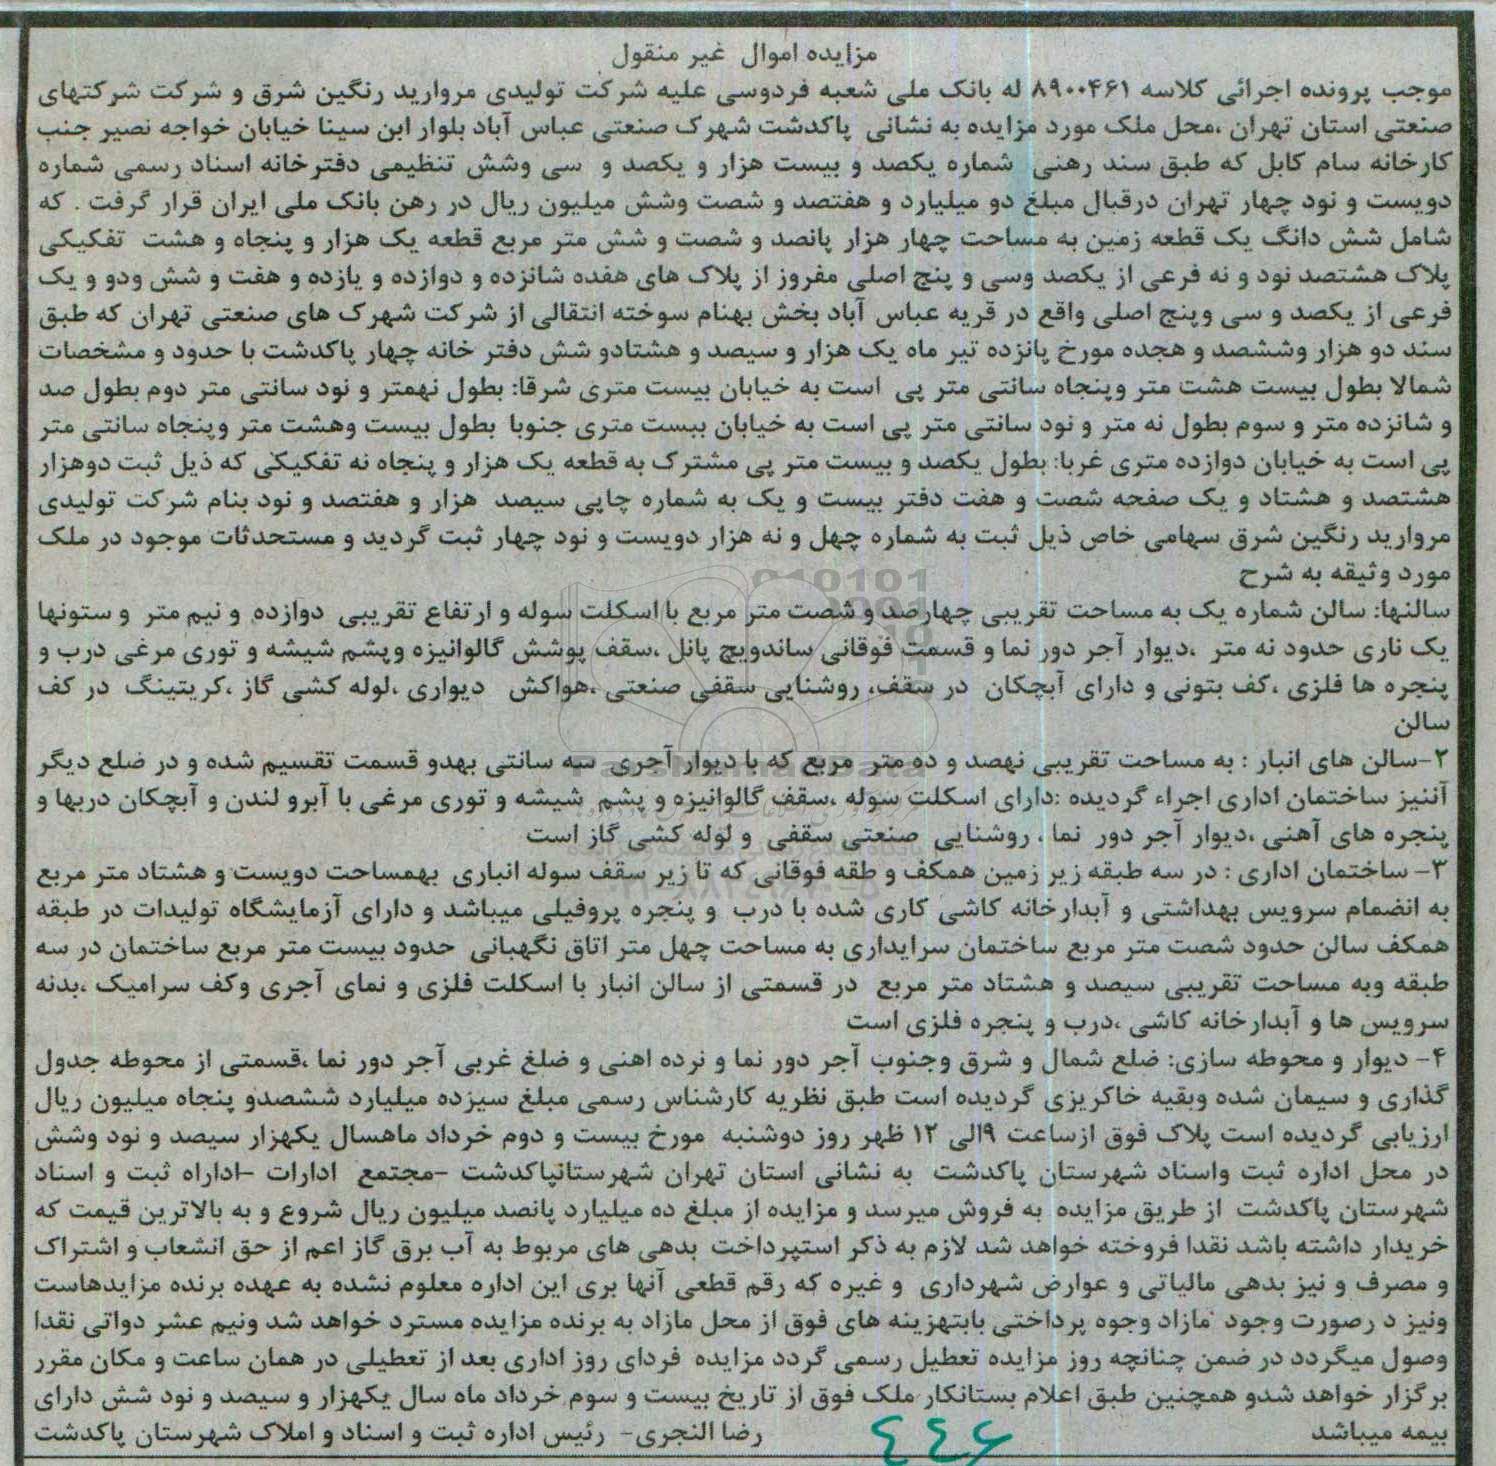 مزایده اموال غیر منقول
موجب پرونده اجرائی کلاسه ۸۹۰۰۴۶۱ له بانک ملی شعبه فردوسی علیه شرکت تولیدی مروارید رنگین شرق و شرکت شرکتهای
صنعتی استان تهران ،محل ملک مورد مزایده به نشانی پاکدشت شهرک صنعتی عباس آباد بلوار ابن سینا خیابان خواجه نصیر جنب
کارخانه سام کابل که طبق سند رهنی شماره یکصد و بیست هزار و یکصد و سی وشش تنظیمی دفترخانه اسناد رسمی شماره
دویست و نود چهار تهران درقبال مبلغ دو میلیارد و هفتصد و شصت وشش میلیون ریال در رهن بانک ملی ایران قرار گرفت . که
شامل شش دانگ یک قطعه زمین به مساحت چهار هزار پانصد و شصت و شش متر مربع قطعه یک هزار و پنجاه و هشت تفکیکی
پلاک هشتصد نود و نه فرعی از یکصد وسی و پنج اصلی مفروز از پلاک های هفده شانزده و دوازده و یازده و هفت و شش ودو و یک
فرعی از یکصد و سی وپنج اصلی واقع در قریه عباس آباد بخش بهنام سوخته انتقالی از شرکت شهرک های صنعتی تهران که طبق
سند دو هزار وششصد و هجده مورخ پانزده تیر ماه یک هزار و سیصد و هشتادو شش دفتر خانه چهار پاکدشت با حدود و مشخصات
شمالا بطول بیست هشت متر وپنجاه سانتی متر پی است به خیابان بیست متری شرقا: بطول نهمتر و نود سانتی متر دوم بطول صد
و شانزده متر و سوم بطول نه متر و نود سانتی متر پی است به خیابان بیست متری جنوبا بطول بیست وهشت متر وپنجاه سانتی متر
پی است به خیابان دوازده متری غربا: بطول یکصد و بیست متر پی مشترک به قطعه یک هزار و پنجاه نه تفکیکی که ذیل ثبت دوهزار
هشتصد و هشتاد و یک صفحه شصت و هفت دفتر بیست و یک به شماره چاپی سیصد هزار و هفتصد و نود بنام شرکت تولیدی
مروارید رنگین شرق سهامی خاص ذیل ثبت به شماره چهل و نه هزار دویست و نود چهار ثبت گردید و مستحدثات موجود در ملک
مورد وثیقه به شرح
سالنها: سالن شماره یک به مساحت تقریبی چهارصد و شصت متر مربع با اسکلت سوله و ارتفاع تقریبی دوازده و نیم متر و ستونها
یک ناری حدود نه متر ،دیوار آجر دور نما و قسمت فوقانی ساندویچ پانل ،سقف پوشش گالوانیزه وپشم شیشه و توری مرغی درب و
پنجره ها فلزی ،کف بتونی و دارای آبچکان در سقف، روشنایی سقفی صنعتی ،هواکش دیواری ،لوله کشی گاز ،کریتینگ در کف
سالن
۲-سالن های انبار : به مساحت تقریبی نهصد و ده متر مربع که با دیوار آجری سه سانتی بهدو قسمت تقسیم شده و در ضلع دیگر
آننیز ساختمان اداری اجراء گردیده :دارای اسکلت سوله ،سقف گالوانیزه و پشم شیشه و توری مرغی با آبرو لندن و آبچکان دربها و
پنجره های آهنی ،دیوار آجر دور نما ، روشنایی صنعتی سقفی و لوله کشی گاز است
۳- ساختمان اداری : در سه طبقه زیر زمین همکف و طقه فوقانی که تا زیر سقف سوله انباری بهمساحت دویست و هشتاد متر مربع
به انضمام سرویس بهداشتی و آبدارخانه کاشی کاری شده با درب و پنجره پروفیلی میباشد و دارای آزمایشگاه تولیدات در طبقه
همکف سالن حدود شصت متر مربع ساختمان سرایداری به مساحت چهل متر اتاق نگهبانی حدود بیست متر مربع ساختمان در سه
طبقه وبه مساحت تقریبی سیصد و هشتاد متر مربع در قسمتی از سالن انبار با اسکلت فلزی و نمای آجری وکف سرامیک ،بدنه
سرویس ها و آبدارخانه کاشی ،درب و پنجره فلزی است
۴- دیوار و محوطه سازی: ضلع شمال و شرق وجنوب آجر دور نما و نرده اهنی و ضلغ غربی آجر دور نما ،قسمتی از محوطه جدول
گذاری و سیمان شده وبقیه خاکریزی گردیده است طبق نظریه کارشناس رسمی مبلغ سیزده میلیارد ششصدو پنجاه میلیون ریال
ارزیابی گردیده است پلاک فوق ازساعت ۹الی ۱۲ ظهر روز دوشنبه مورخ بیست و دوم خرداد ماهسال یکهزار سیصد و نود وشش
در محل اداره ثبت واسناد شهرستان پاکدشت به نشانی استان تهران شهرستانپاکدشت -مجتمع ادارات -اداراه ثبت و اسناد
شهرستان پاکدشت از طریق مزایده به فروش میرسد و مزایده از مبلغ ده میلیارد پانصد میلیون ریال شروع و به بالاترین قیمت که
خریدار داشته باشد نقدا فروخته خواهد شد لازم به ذکر استپرداخت بدهی های مربوط به آب برق گاز اعم از حق انشعاب و اشتراک
و مصرف و نیز بدهی مالیاتی و عوارض شهرداری و غیره که رقم قطعی آنها بری این اداره معلوم نشده به عهده برنده مزایدهاست
ونیز د رصورت وجود مازاد وجوه پرداختی بابتهزینه های فوق از محل مازاد به برنده مزایده مسترد خواهد شد ونیم عشر دواتی نقدا
وصول میگردد در ضمن چنانچه روز مزایده تعطیل رسمی گردد مزایده فردای روز اداری بعد از تعطیلی در همان ساعت و مکان مقرر
برگزار خواهد شدو همچنین طبق اعلام بستانکار ملک فوق از تاریخ بیست و سوم خرداد ماه سال یکهزار و سیصد و نود شش دارای
بیمه میباشد
رضا النجری- رئیس اداره ثبت و اسناد و املاک شهرستان پاکدشت